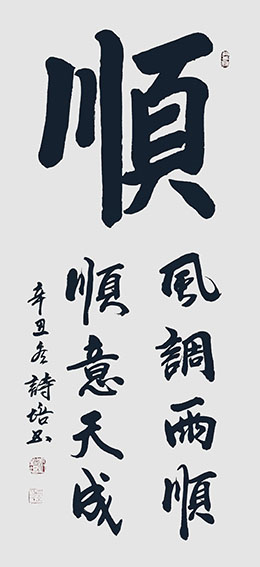 順
風調雨順
順意天成
辛丑冬詩培書